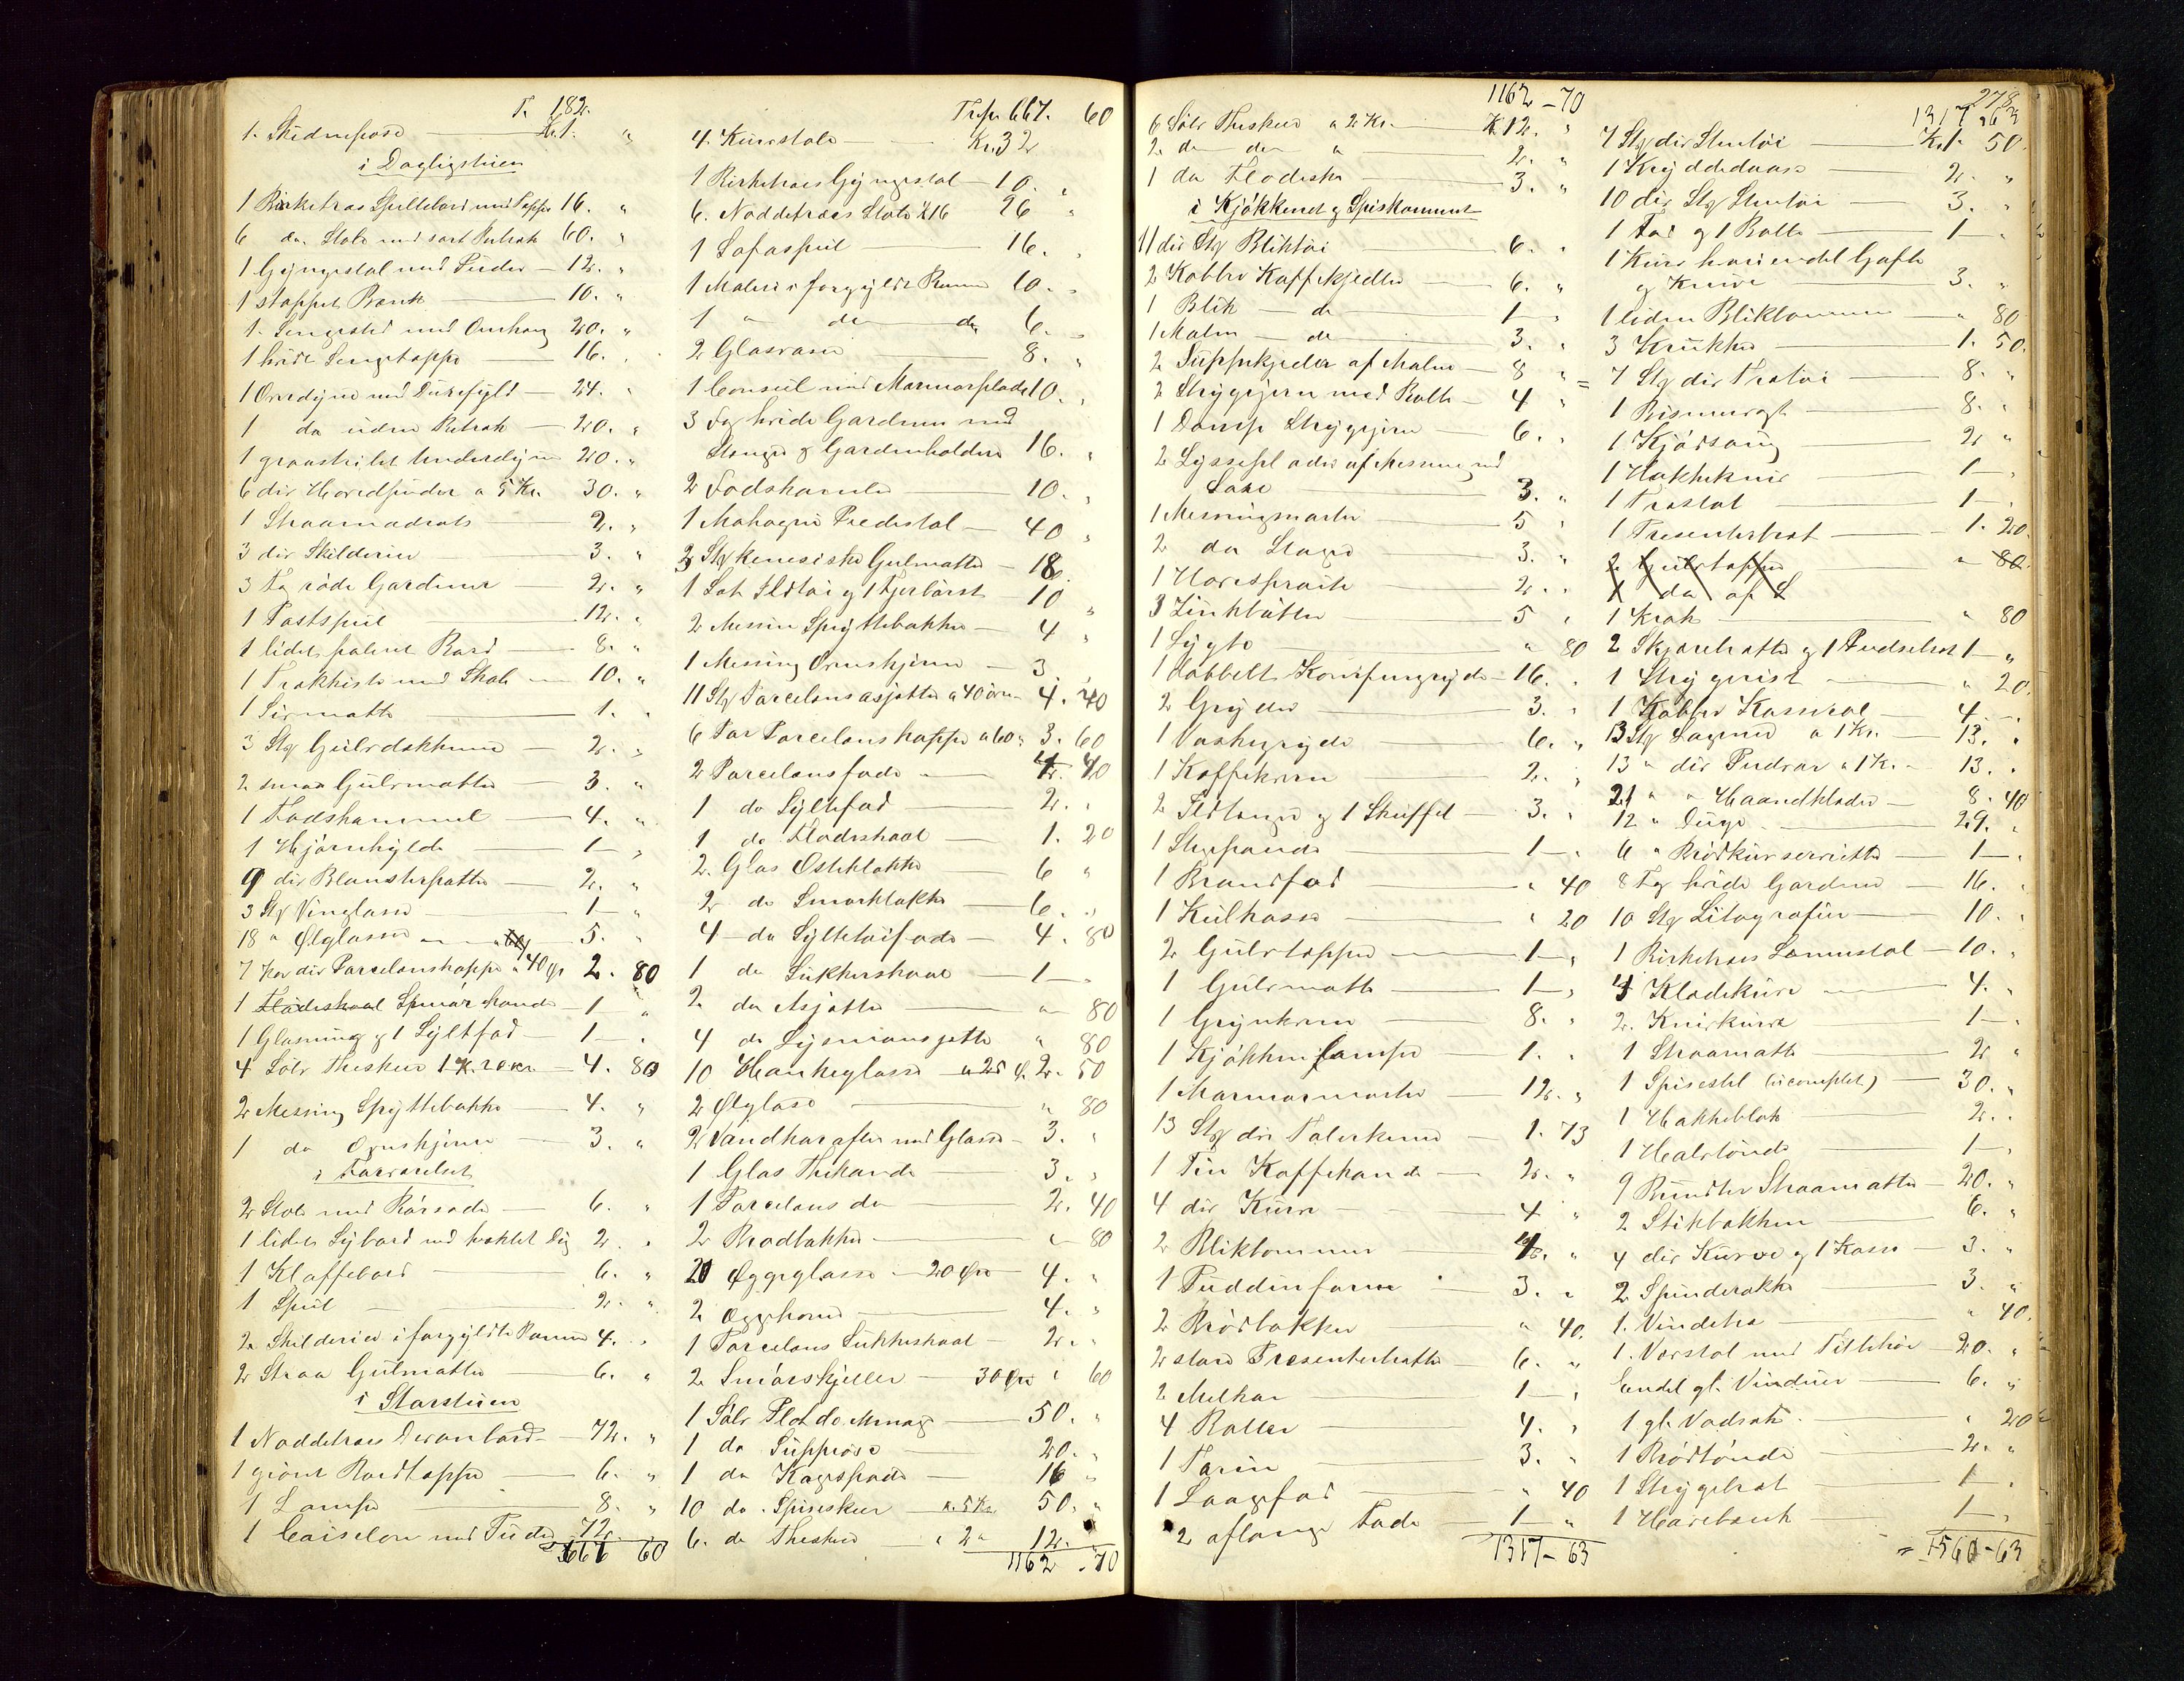 T. 182.
1. Skidnepose Kr. 1. "
i Dagligstuen
1 Birketræs Spillebord med Tæppe 16. "
6 do. Stole med sort Betræk 60. "
1 Gyngestol med Puder 12. "
1 stoppet Bænk 10. "
1 Sengested med Omhæng 20. "
1 hvidt Sengetæppe 16. "
1 Overdyne med Dunefyld 24. "
1 do uden Betræk 20. "
1 graastribet Underdyne 20. "
6 div Hovedpuder a 5 Kr. 30. "
1 Straamadrats 2. "
3 div Skilderier 3. "
3 Fag røde Gardiner 2. "
1 Speil 12. "
1 lidet poleret Bord 8. "
1 Træskiste med Skab 10. "
1 Sivmatte 1. "
3 Stk Gulvdækkener 2. "
2 smaa Gulvmatter 3. "
1 Fodskammel 4. "
1 Hjørnehylde 1 "
9 div Blomsterpotter 2. "
3 Stk Vinglasse 1 "
18 " Ølglasse 5. "
7 Par div Porcelænskopper a 40 Ør 2. 80
1 Flødeskaal Smørkande 1 "
1 Glasmugg og 1 Syltfad 1 "
4 Sølv Theskeer 1 K. 20 Ør 4. 80
2 Messing Spyttebakke 4. "
1 do Ovnskjerm 3. "
i Forværelset
2 Stole med Rørsæde 6. "
1 lidet Sybord med heklet Dug 2. "
1 Klaffebord 6. "
1 Speil 2. "
2 Skilderier i forgyldte Rammer 4. "
2 Straa Gulvmatter 6. "
i Storstuen
1 Nøddetræs Divanbord 72. "
1 grønt Bordtæppe 6. "
1 Lampe 8. "
1 Caiselon med Pude 72. "
667 60
Trsp. 667. 60
4 Kurvstole Kr. 32
1 Birketræs Gyngestol 10. "
6. Nøddetræes Stole a 16 96 "
1 Sofaspeil 16. "
1 Maleri i forgyldt Ramme 10. "
1 " do do 6. "
2 Glasvaser 8. "
1 Consul med Marmorplade 10. "
3 Fag hvide Gardiner med
Stænger & Gardinholdere 16. "
2 Fodskamler 10. "
1 Mahogni Piedestal 40 "
2 Stk kinesiske Gulvmatter 18.
1 Sæt Ildtøi og 1 Fjerbørst 10 "
2 Messing Spyttebakker 4 "
1 Messing Ovnskjerm 3.
11 Stk Porcelænsasjetter a 40 øre 4. 40
6 Par Porcelænskopper a 60 " 3. 60
2 Porcelænsfade 4. 40
1 do Syltefad 2. "
1 do Flødeskaal 1. 20
2. Glas Osteklokker 6 "
2 do Smørklokke 6. "
4 do Syltetøifade 4. 80
1 do Sukkerskaal 1 "
2 do Asjetter " 80
4 do Lysmansjetter " 80
10 Hankeglasse a 25 Ø. 2. 50
2 Ølglase " 80
2 Vandkarafler med Glasse 3. "
1 Glas Thekande 3. "
1 Porcelæns do 2. 40
2 Brødbakker " 80
20 Æggeglasse 20 Øre 4. "
2 Æggehøner 4. "
1 Porcelæns Sukkerskaal 2. "
2 Smørskjeller 30 Øre " 60
1 Sølv Plat de Menage 50. "
1 do Suppeøse 20. "
1 do Kagespade 16 "
10 do. Spiseskeer a. 5 Kr. 50. "
6. do Theskeer " 2 " 12. "
1162 . 70
1162 - 70
6 Sølv Theskeer a 2 Kr. K. 12. "
2 do do " 2. "
1 do Flødeske 3. "
i Kjøkkenet og Spiskammeret
11 div Stk Bliktøi 6. "
2 Kobber Kaffekjedler 6. "
1 Blik do 1 "
1 Malm do 3. "
2 Suppekjedler af Malm 8 "
2 Strygejern med Bolte 4 "
1 Damp Strygejern 6. "
2 Lyssepl ader af Messing med
Saxe 3. "
1 Messingmorter 5 "
2 do Stager 3. "
1 Havesprøite 2. "
3 Zinkbøtter 5 "
1 Lygte " 80
1 dobbelt Komfurgryde 16. "
2 Gryder 3. "
1 Vaskegryde 6. "
1 Kaffekværn 2. "
2 Ildtænger og 1 Skuffel 3. "
1 Stegepande 1 "
1 Brandfad " 40
1 Kulkasse " 20
2 Gulvtæpper 1 "
1 Gulvmatte 1 "
1 Grynkværn 8. "
1 Kjøkkenlampe 1. "
1 Marmormorter 12. "
13 Stk div Talerkener 1. 73
1 Tin Kaffekande 2. "
4 div Kurve 4 "
2 Bliktommer 4. "
1 Puddinform 3. "
2 Brødbakker " 40.
2 store Presenterbretter 6. "
2 Melkar 1 "
4 Boller 4. "
1 Tærin 3. "
1 Laagefad " 40
2 aflange Fade 1 "
1317 - 63
278
1317 63
7 Stk div Stentøi Kr. 1. 50.
1 Krydderdaase 2. "
10 div Stk Stentøi 3. "
1 Fad og 1 Bolle 1 "
1 Kurv hvori endel Gafle
og Knive 3. "
1 liden Bliktomme " 80
3 Krukker 1. 50.
7 Stk div Trætøi 8. "
1 Bismervægt 8. "
1 Kjødsaug 2 "
1 Hakkekniv 1 "
1 Træstol 1 "
1 Presenterbræt 1. 20
2 Gulvtæpper " 80.
1 do af L
1 Krak " 80
2 Skjærebrætter og 1 Pudsebræt 1 "
1 Strygerist " 20.
1 Kobber Kasserol 4 "
13 Stk Lagener a 1 Kr. 13. "
13 " div Pudevar a 1 K. 13. "
21 " " Haandklæder 8. 40
12 " Duge 29. "
6 " Brødkurvservietter 1 "
8 Fag hvide Gardiner 16. "
10 Stk Litografier 10. "
1 Birketræes Lænestol 10. "
4 Klædekurve 4. "
2. Knivkurve 1 "
1 Straamatte 2 "
1 Spisestel (ucomplet) 30. "
1 Hakkeblok 2. "
1 Halvtønde 1 "
9 Bundter Straamatter 20. "
2 Stikbækkener 6. "
4 div Kurve og 1 Kasse 3. "
2 Spinderokke 3. "
1. Vindetræ " 40.
1. Vævstol med Tilbehør 20. "
Endel gl. Vinduer 6. "
1 gl. Vadsæk " 20
1 Brødtønde 2. "
1 Strygebræt 1 "
1 Havebænk 1 "
= 1560 - 63